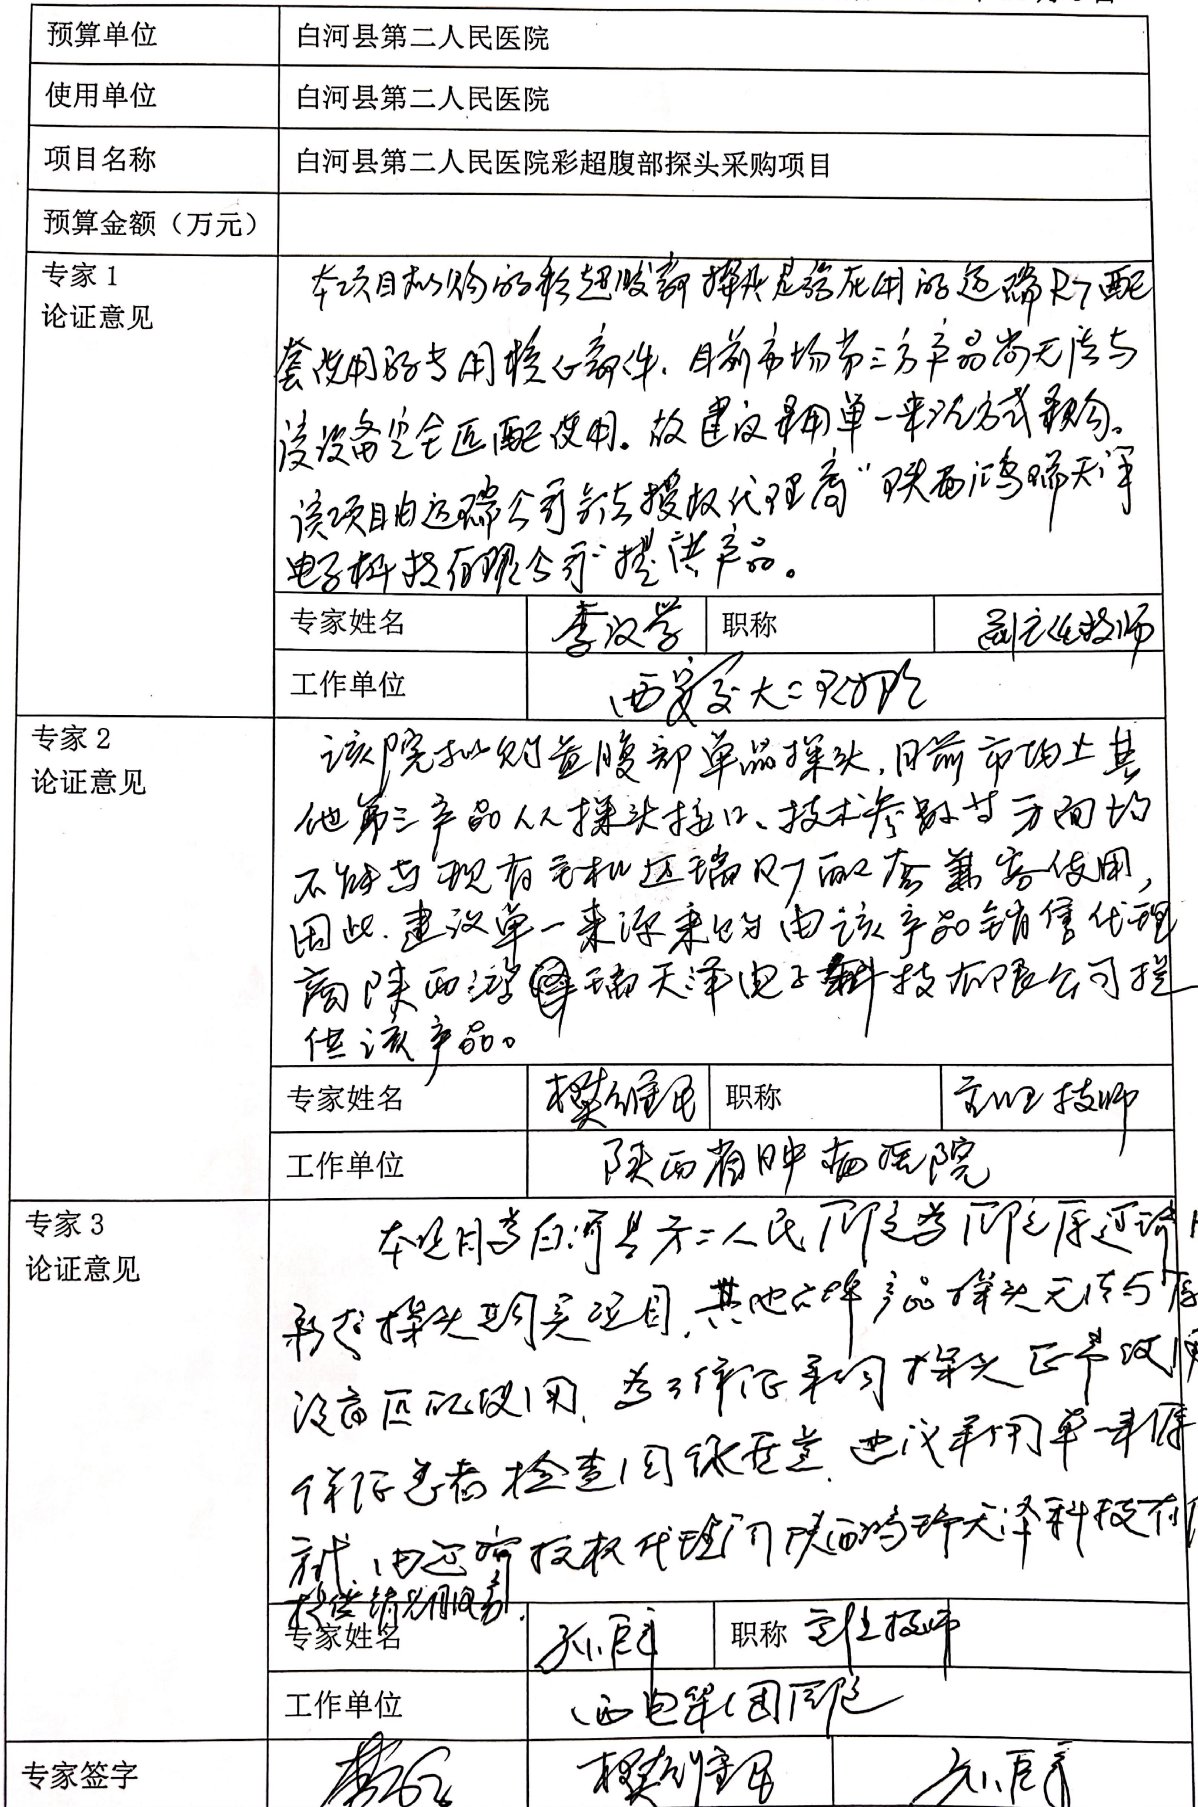 预算单位 白河县第二人民医院
使用单位 白河县第二人民医院
项目名称 白河县第二人民医院彩超腹部探头采购项目
预算金额（万元）
专家1
论证意见
本项目拟购的彩超腹部探头是该在用的迈瑞R7配
套使用的专用核心部件，目前市场第三方产品尚无法与
该设备完全匹配使用。故建议采用单一来源方式采购。
该项目由迈瑞公司合法授权代理商“陕西鸿瑞天泽
电子科技有限公司”提供产品。
专家姓名 李汉学 职称 副主任技师
工作单位 西安交大二附院
专家2
论证意见
该院拟购置腹部单晶探头，目前市场上其
他第三产品从探头接口、技术参数等方面均
不能与现有主机迈瑞R7配套兼容使用，
因此，建议单一来源采购由该产品销售代理
商陕西鸿瑞天泽电子科技有限公司提
供该产品。
专家姓名 樊维民 职称 主任技师
工作单位 陕西省肿瘤医院
专家3
论证意见
本项目为白河县第二人民医院为医院原迈瑞
彩超探头购买项目，其他品牌产品探头无法与原
设备匹配使用，为了保证采购探头正常使
保证患者检查图像质量，建议采用单一来源
方式，由迈瑞授权代理商陕西鸿瑞天泽科技有
提供销售服务。
专家姓名 职称 主任技师
工作单位 西电集团医院
专家签字 樊维民